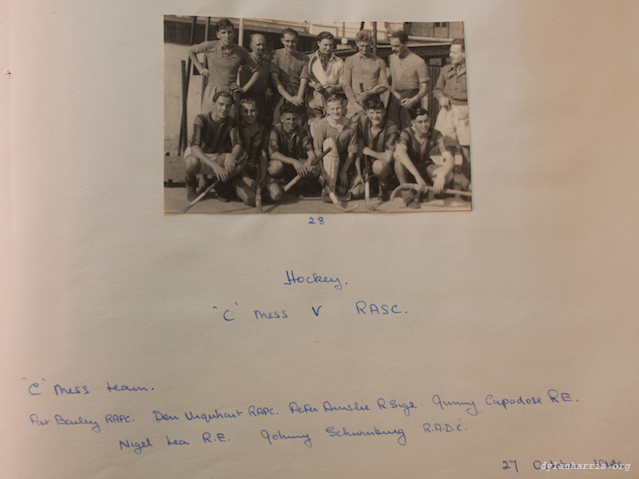 28
Hockey.
"C" Mess V RASC.
"C" Mess team.
Pat RAPC. Don Urquhart RAPC. Peter Ainslie R Sigs Jimmy Capadose R.E.
Nigel Lea R.E. Johnny R.A.D.C.
27 October
dylanharris.org